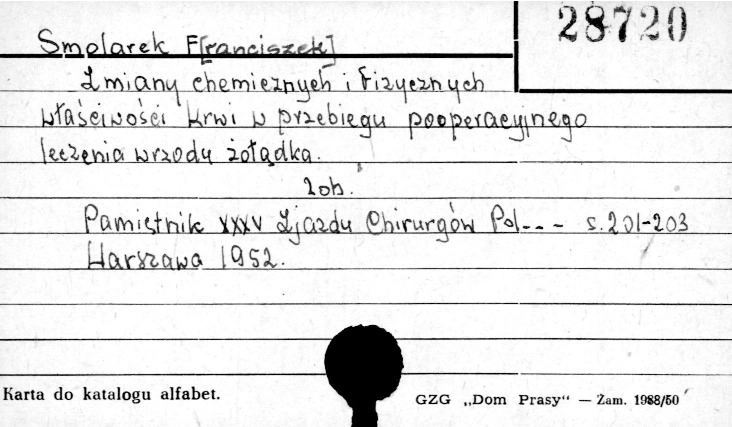 28720
Smolarek F[ranciszek]
Zmiany chemicznych i fizycznych
właściwości krwi w przebiegu pooperacyjnego
leczenia wrzodu żołądka.
Zob.
Pamiętnik XXXV Zjazdu Chirurgów Pol--- s.201-203
Warszawa 1952.
Karta do katalogu alfabet.
GZG „Dom Prasy“ — Zam. 1988/50